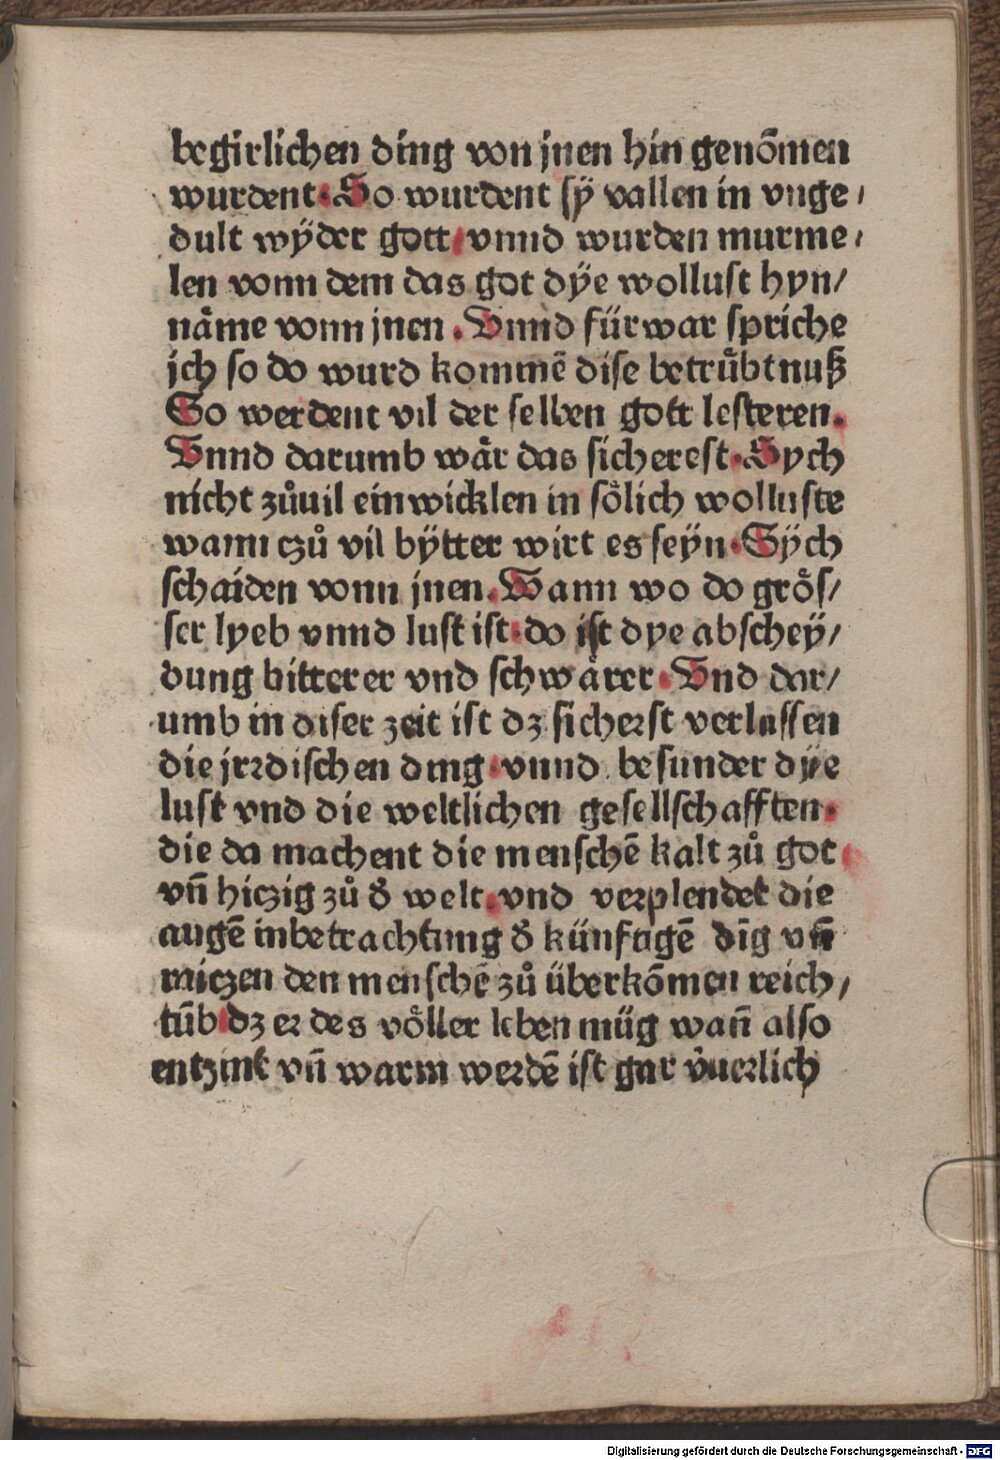 begirlichen ding von jnen hin genōmen
wurdent. So wurdent sÿ vallen in vnge/
dult wÿder gott/ vnnd wurden murme/
len vonn dem das got dÿe wollust hyn/
nåme vonn jnen. Vnnd fürwar spriche
jch so do wurd kommē dise betrůbtnuß
So werdent vil der selben gott lesteren.
Vnnd darumb wår das sicherest. Sych
nicht zůuil einwicklen in sőlich wolluste
wann czů vil bÿtter wirt es seÿn. Sÿch
schaiden vonn jnen. Wann wo do grős/
ser lyeb vnnd lust ist. do ist dye abscheÿ/
dung bitterer vnd schwårer. Vnd dar/
umb in diser zeit ist dz sicherst verlassen
die jrrdischen ding. vnnd besunder dÿe
lust vnd die weltlichen gesellschafften.
die da machent die menschē kalt zů got
vn̄ hiczig zů đ welt. vnd verplendet die
augē in betrachtung đ künftigē dīg vn̄
raiczen den menschē zů überkōmen reich/
tūb dz er des vőller leben müg wan̄ also
entzint vn̄ warm werdē ist gar v̓uerlich
Digitalisierung gefördert durch die Deutsche Forschungsgemeinschaft - DFG